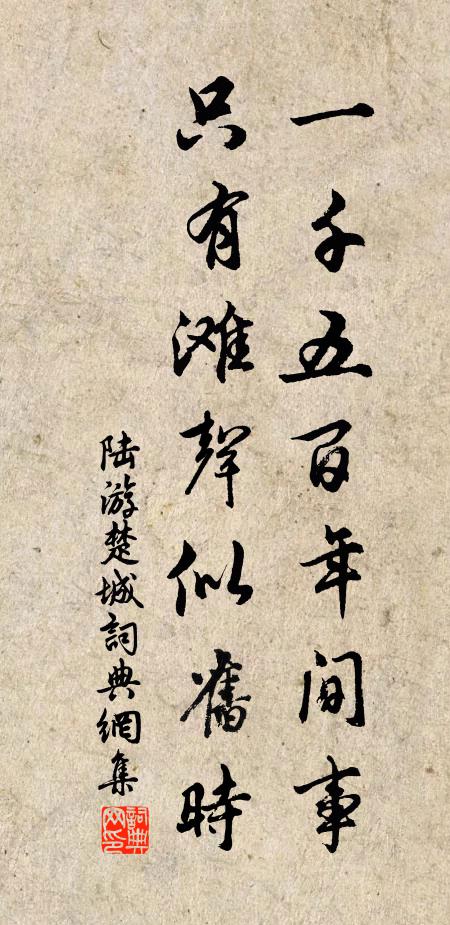 一千五百年间事
只有滩声似舊時
陆游楚城詞典網集
詞典网印